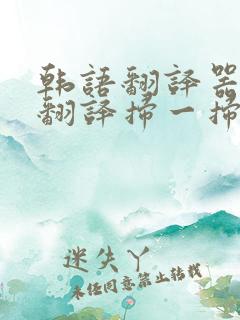 韩語翻譯器
翻譯掃一掃
迷失丫
未经同意禁止转载